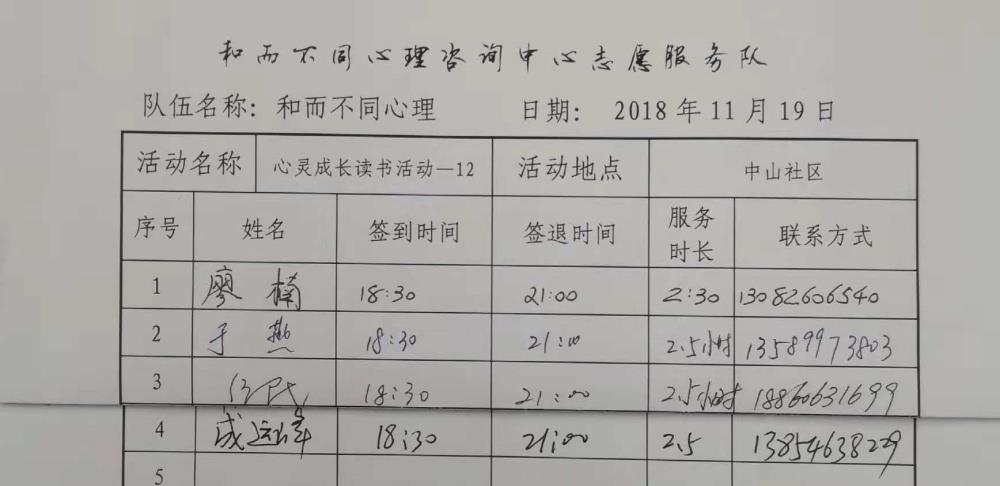 和而不同心理咨询中心志愿服务队
队伍名称：和而不同心理 日期： 2018 年 11 月 19 日
活动名称 心灵成长读书活动—12 活动地点 中山社区
序号 姓名 签到时间 签退时间 服务时长 联系方式
1 廖楠 18:30 21:00 2:30 13082606540
2 于燕 18:30 21:00 2.5小时 13589973803
3 18:30 21:00 2.5小时 18860631699
4 成 18:30 21:00 2.5 13854638229
5